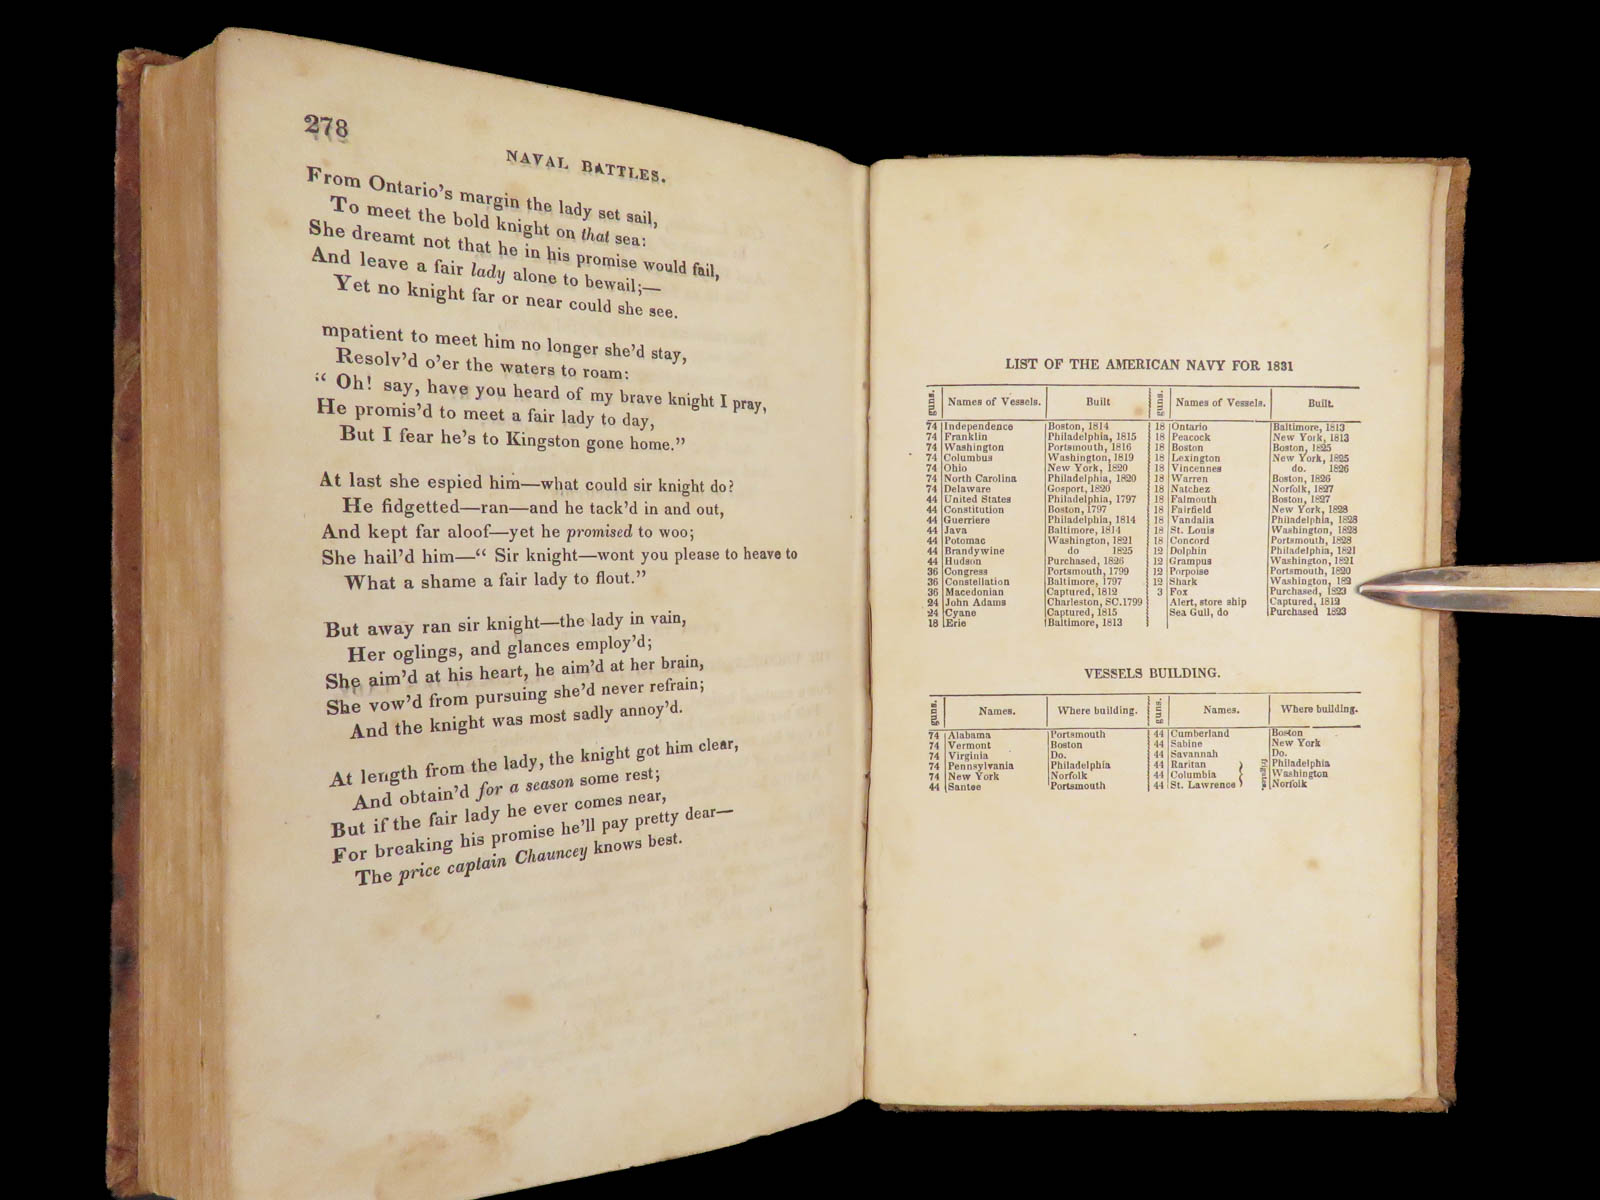 278
NAVAL BATTLES.
From Ontario's margin the lady set sail,
To meet the bold knight on that sea:
She dreamt not that he in his promise would fail,
And leave a fair lady alone to bewail;—
Yet no knight far or near could she see.
mpatient to meet him no longer she'd stay,
Resolv'd o'er the waters to roam:
“ Oh! say, have you heard of my brave knight I pray,
He promis'd to meet a fair lady to day,
But I fear he's to Kingston gone home.”
At last she espied him—what could sir knight do?
He fidgetted—ran—and he tack'd in and out,
And kept far aloof—yet he promised to woo;
She hail'd him—“ Sir knight—wont you please to heave to
What a shame a fair lady to flout.”
But away ran sir knight—the lady in vain,
Her oglings, and glances employ'd;
She aim'd at his heart, he aim'd at her brain,
She vow'd from pursuing she'd never refrain;
And the knight was most sadly annoy'd.
At length from the lady, the knight got him clear,
And obtain'd for a season some rest;
But if the fair lady he ever comes near,
For breaking his promise he'll pay pretty dear—
The price captain Chauncey knows best.
LIST OF THE AMERICAN NAVY FOR 1831
guns. Names of Vessels. Built guns. Names of Vessels. Built.
74 Independence Boston, 1814 18 Ontario Baltimore, 1813
74 Franklin Philadelphia, 1815 18 Peacock New York, 1813
74 Washington Portsmouth, 1816 18 Boston Boston, 1825
74 Columbus Washington, 1819 18 Lexington New York, 1825
74 Ohio New York, 1820 18 Vincennes do. 1826
74 North Carolina Philadelphia, 1820 18 Warren Boston, 1826
74 Delaware Gosport, 1820 18 Natchez Norfolk, 1827
44 United States Philadelphia, 1797 18 Falmouth Boston, 1827
44 Constitution Boston, 1797 18 Fairfield New York, 1828
44 Guerriere Philadelphia, 1814 18 Vandalia Philadelphia, 1828
44 Java Baltimore, 1814 18 St. Louis Washington, 1828
44 Potomac Washington, 1821 18 Concord Portsmouth, 1828
44 Brandywine do 1825 12 Dolphin Philadelphia, 1821
44 Hudson Purchased, 1826 12 Grampus Washington, 1821
36 Congress Portsmouth, 1799 12 Porpoise Portsmouth, 1820
36 Constellation Baltimore, 1797 12 Shark Washington, 182
36 Macedonian Captured, 1812 3 Fox Purchased, 1823
24 John Adams Charleston, SC.1799 Alert, store ship Captured, 1812
24 Cyane Captured, 1815 Sea Gull, do Purchased 1823
18 Erie Baltimore, 1813
VESSELS BUILDING.
guns. Names. Where building. guns. Names. Where building.
74 Alabama Portsmouth 44 Cumberland Boston
74 Vermont Boston 44 Sabine New York
74 Virginia Do. 44 Savannah Do.
74 Pennsylvania Philadelphia 44 Raritan Philadelphia
74 New York Norfolk 44 Columbia Washington
44 Santee Portsmouth 44 St. Lawrence Norfolk